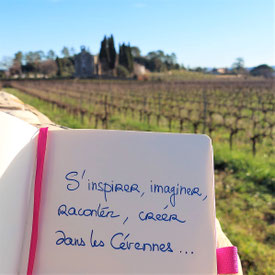 S'inspirer, imaginer,
raconter, créer
dans les Cévennes ...